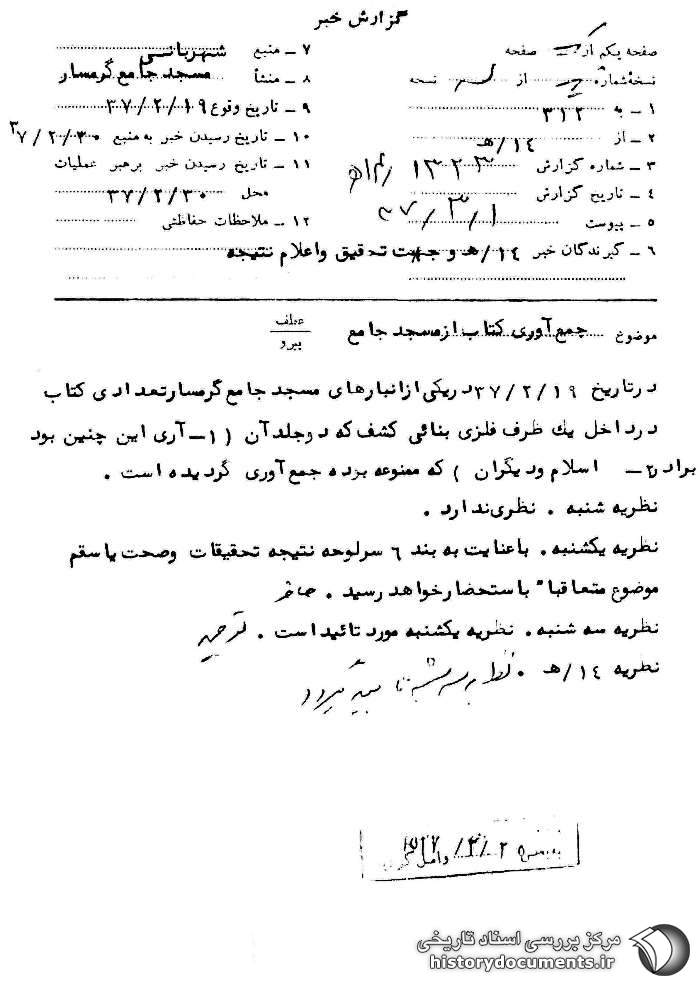 گزارش خبر
صفحه یکم از یک صفحه
نسخه شماره از نسخه
۱ ـ به ۳۱۲
۲ ـ از ۱۴/هـ
۳ ـ شماره گزارش ۱۳۲۳
۴ ـ تاریخ گزارش ۳۷/۳/۱
۵ ـ پیوست
۶ ـ گیرندگان خبر ۱۴/هـ و جهت تحقیق و اعلام نتیجه
۷ ـ منبع شهربانی
۸ ـ منشأ مسجد جامع گرمسار
۹ ـ تاریخ وقوع ۳۷/۲/۱۹
۱۰ ـ تاریخ رسیدن خبر به منبع ۳۷/۲/۳۰
۱۱ ـ تاریخ رسیدن خبر برهبر عملیات
محل ۳۷/۲/۳۰
۱۲ ـ ملاحظات حفاظتی
موضوع جمع آوری کتاب از مسجد جامع
عطف
پیرو
در تاریخ ۳۷/۲/۱۹ در یکی از انبارهای مسجد جامع گرمسار تعدادی کتاب
در داخل یك ظرف فلزی بنائی کشف که دو جلد آن (۱ـ آری این چنین بود
برادر ۲ـ اسلام و دیگران ) که ممنوعه بوده جمع آوری گردیده است .
نظریه شنبه . نظری ندارد .
نظریه یکشنبه . با عنایت به بند ۶ سرلوحه نتیجه تحقیقات وصحت یا سقم
موضوع متعاقباً باستحضار خواهد رسید .
نظریه سه شنبه . نظریه یکشنبه مورد تائید است .
نظریه ۱۴/هـ . نظریه سه شنبه تائید میگردد
مرکز بررسی اسناد تاریخی
historydocuments.ir